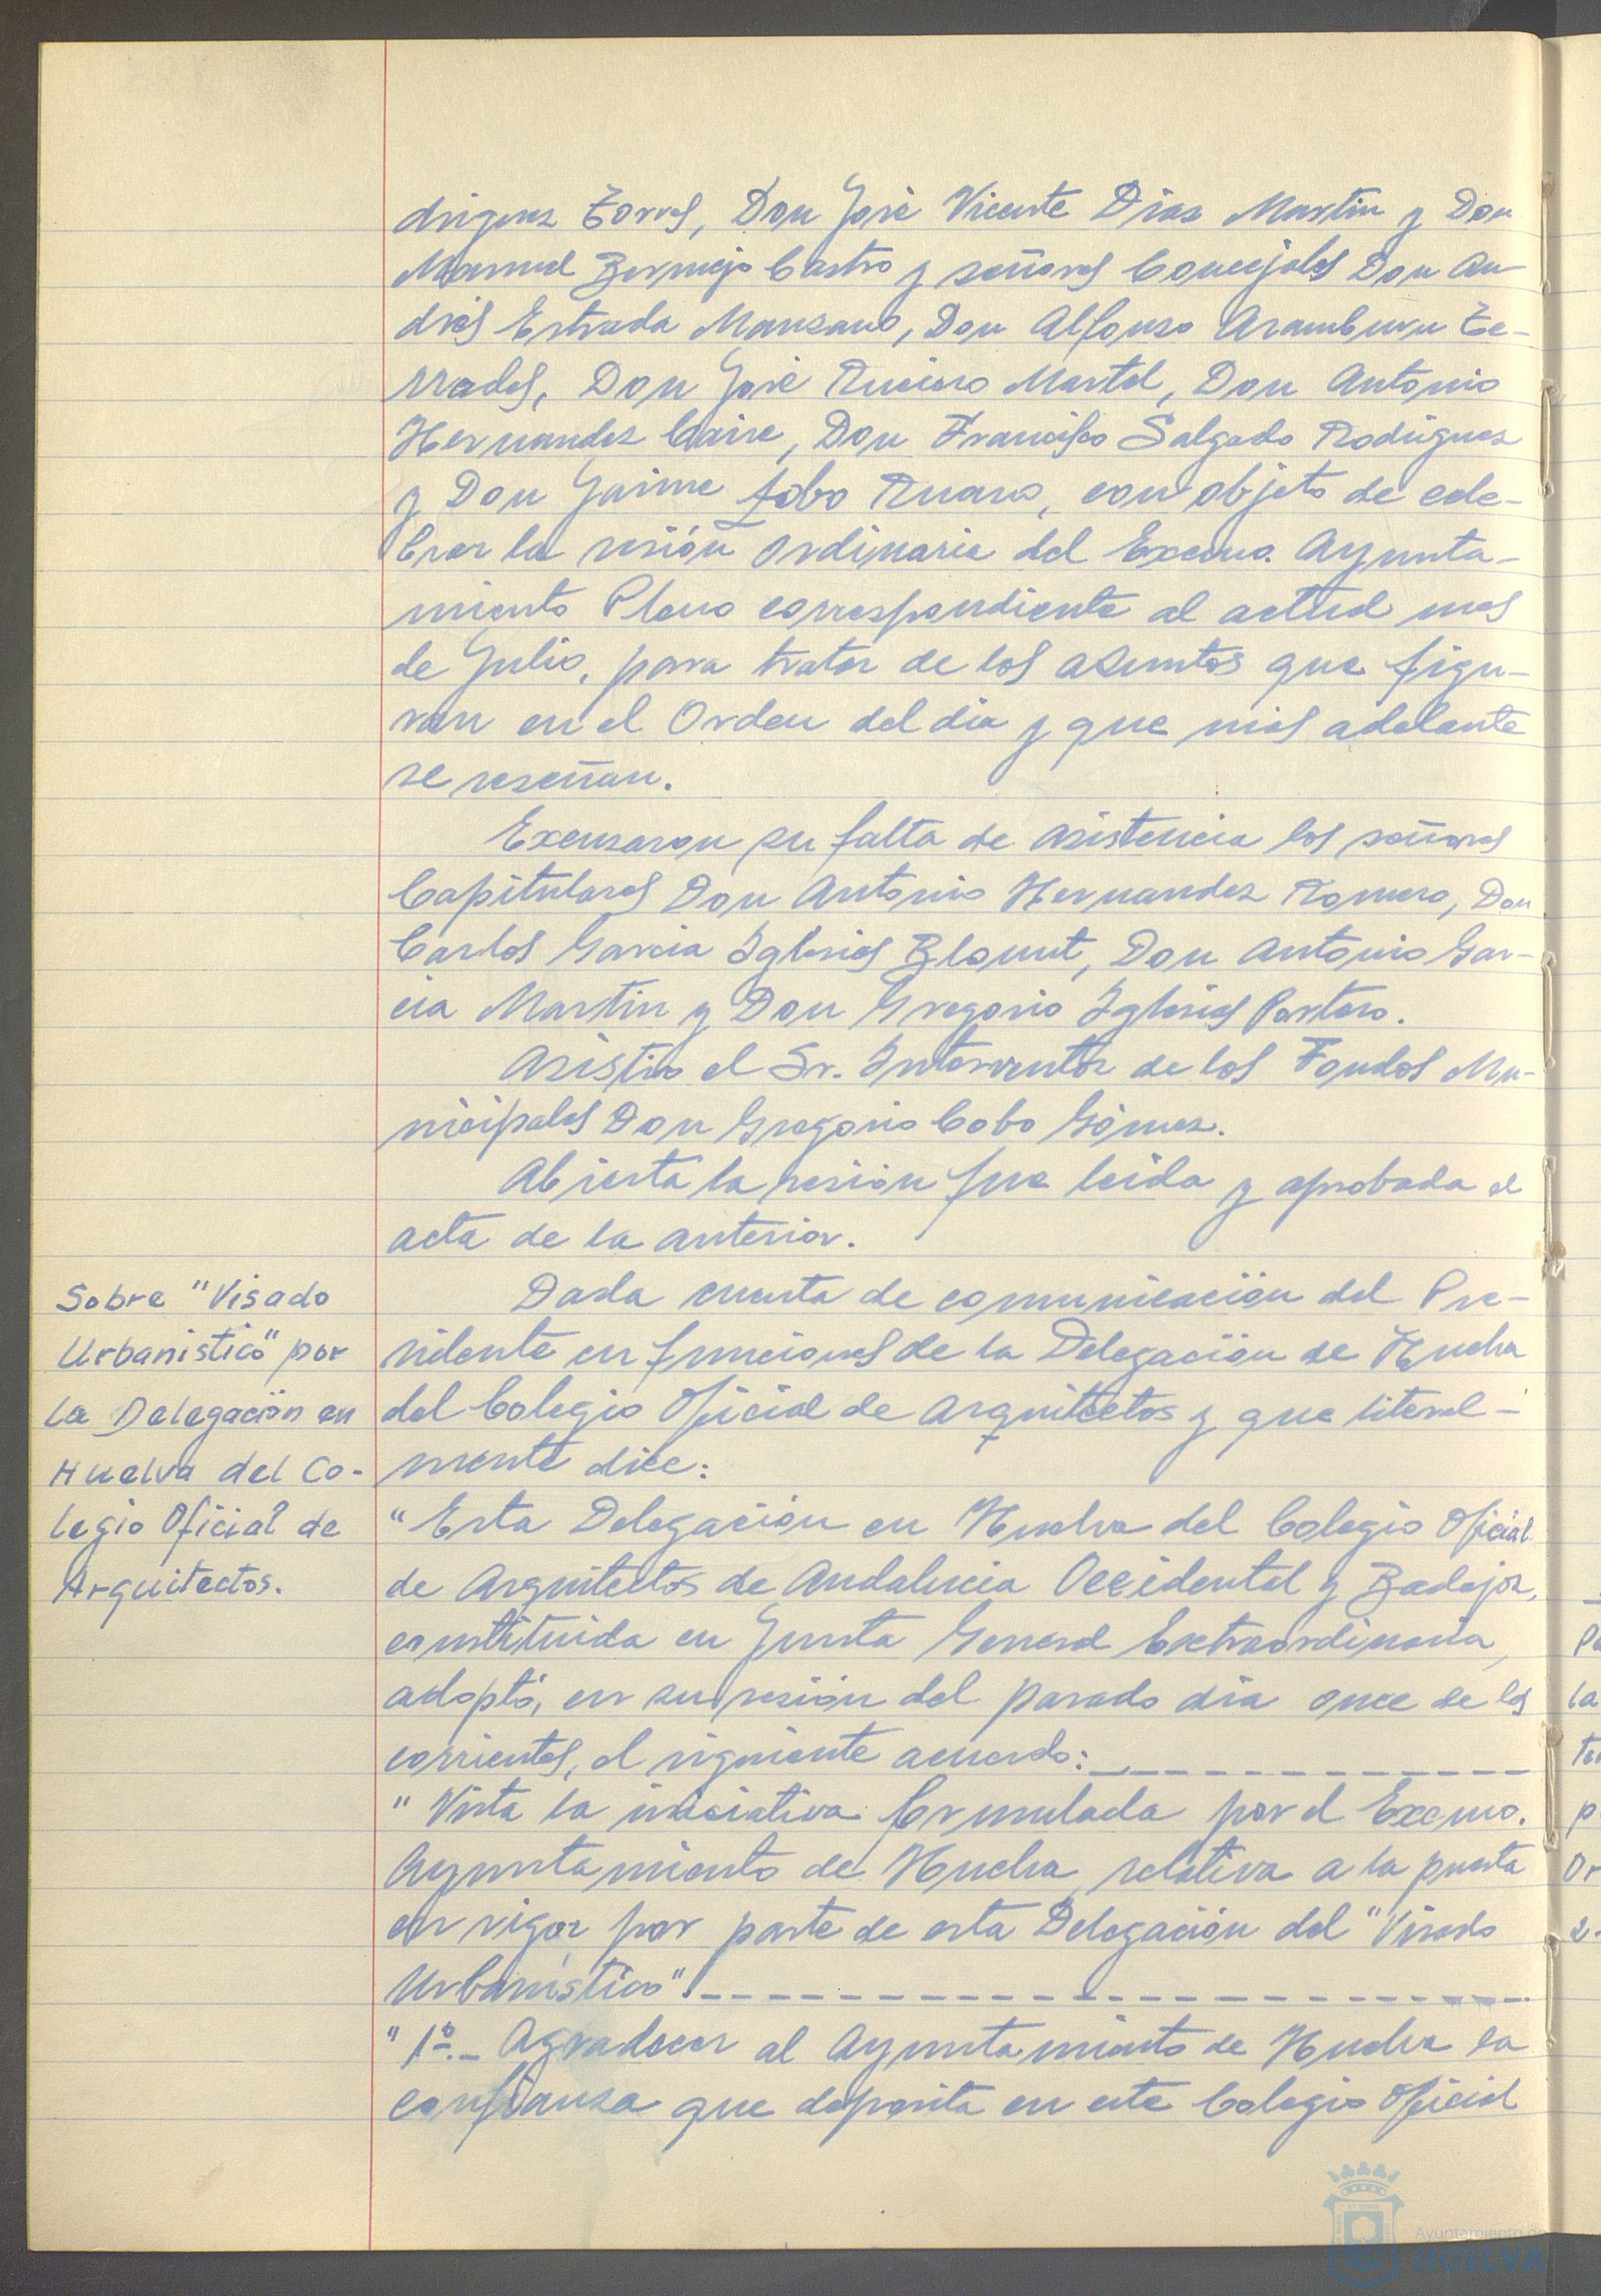 driguez Torres, Don José Vicente Dias Martin y Don
Manuel Bermejo Castro y señores Concejales Don An-
drés Estrada Manzano, Don Alfonso Aramburu Te-
rrades, Don José Ruciero Martel, Don Antonio
Hernandez Caire, Don Francisco Salgado Rodriguez
y Don Jaime Lobo Ruano, con objeto de cele-
brar la sesión ordinaria del Excmo. Ayunta-
miento Pleno correspondiente al actual mes
de Julio, para tratar de los asuntos que figu-
ran en el Orden del dia y que más adelante
se reseñan.
Excusaron su falta de asistencia los señores
Capitulares Don Antonio Hernandez Romero, Don
Carlos Garcia Iglesias Blount, Don Antonio Gar-
cia Martin y Don Gregorio Iglesias Portero.
Asistió el Sr. Interventor de los Fondos Mu-
nicipales Don Gregorio Cobo Gómez.
Abierta la sesión fue leida y aprobada el
acta de la anterior.
Sobre "Visado
Urbanistico" por
la Delegación en
Huelva del Co-
legio Oficial de
Arquitectos.
Dada cuenta de comunicación del Pre-
sidente en funciones de la Delegación de Huelva
del Colegio Oficial de Arquitectos y que literal-
mente dice:
"Esta Delegación en Huelva del Colegio Oficial
de Arquitectos de Andalucia Occidental y Badajoz,
constituida en Junta General Extraordinaria,
adoptó, en su sesión del pasado dia once de los
corrientes, el siguiente acuerdo:
"Vista la iniciativa formulada por el Excmo.
Ayuntamiento de Huelva, relativa a la puesta
en vigor por parte de esta Delegación del "Visado
Urbanístico".
"1º.- Agradecer al Ayuntamiento de Huelva la
confianza que deposita en este Colegio Oficial
Ayuntamiento de
HUELVA